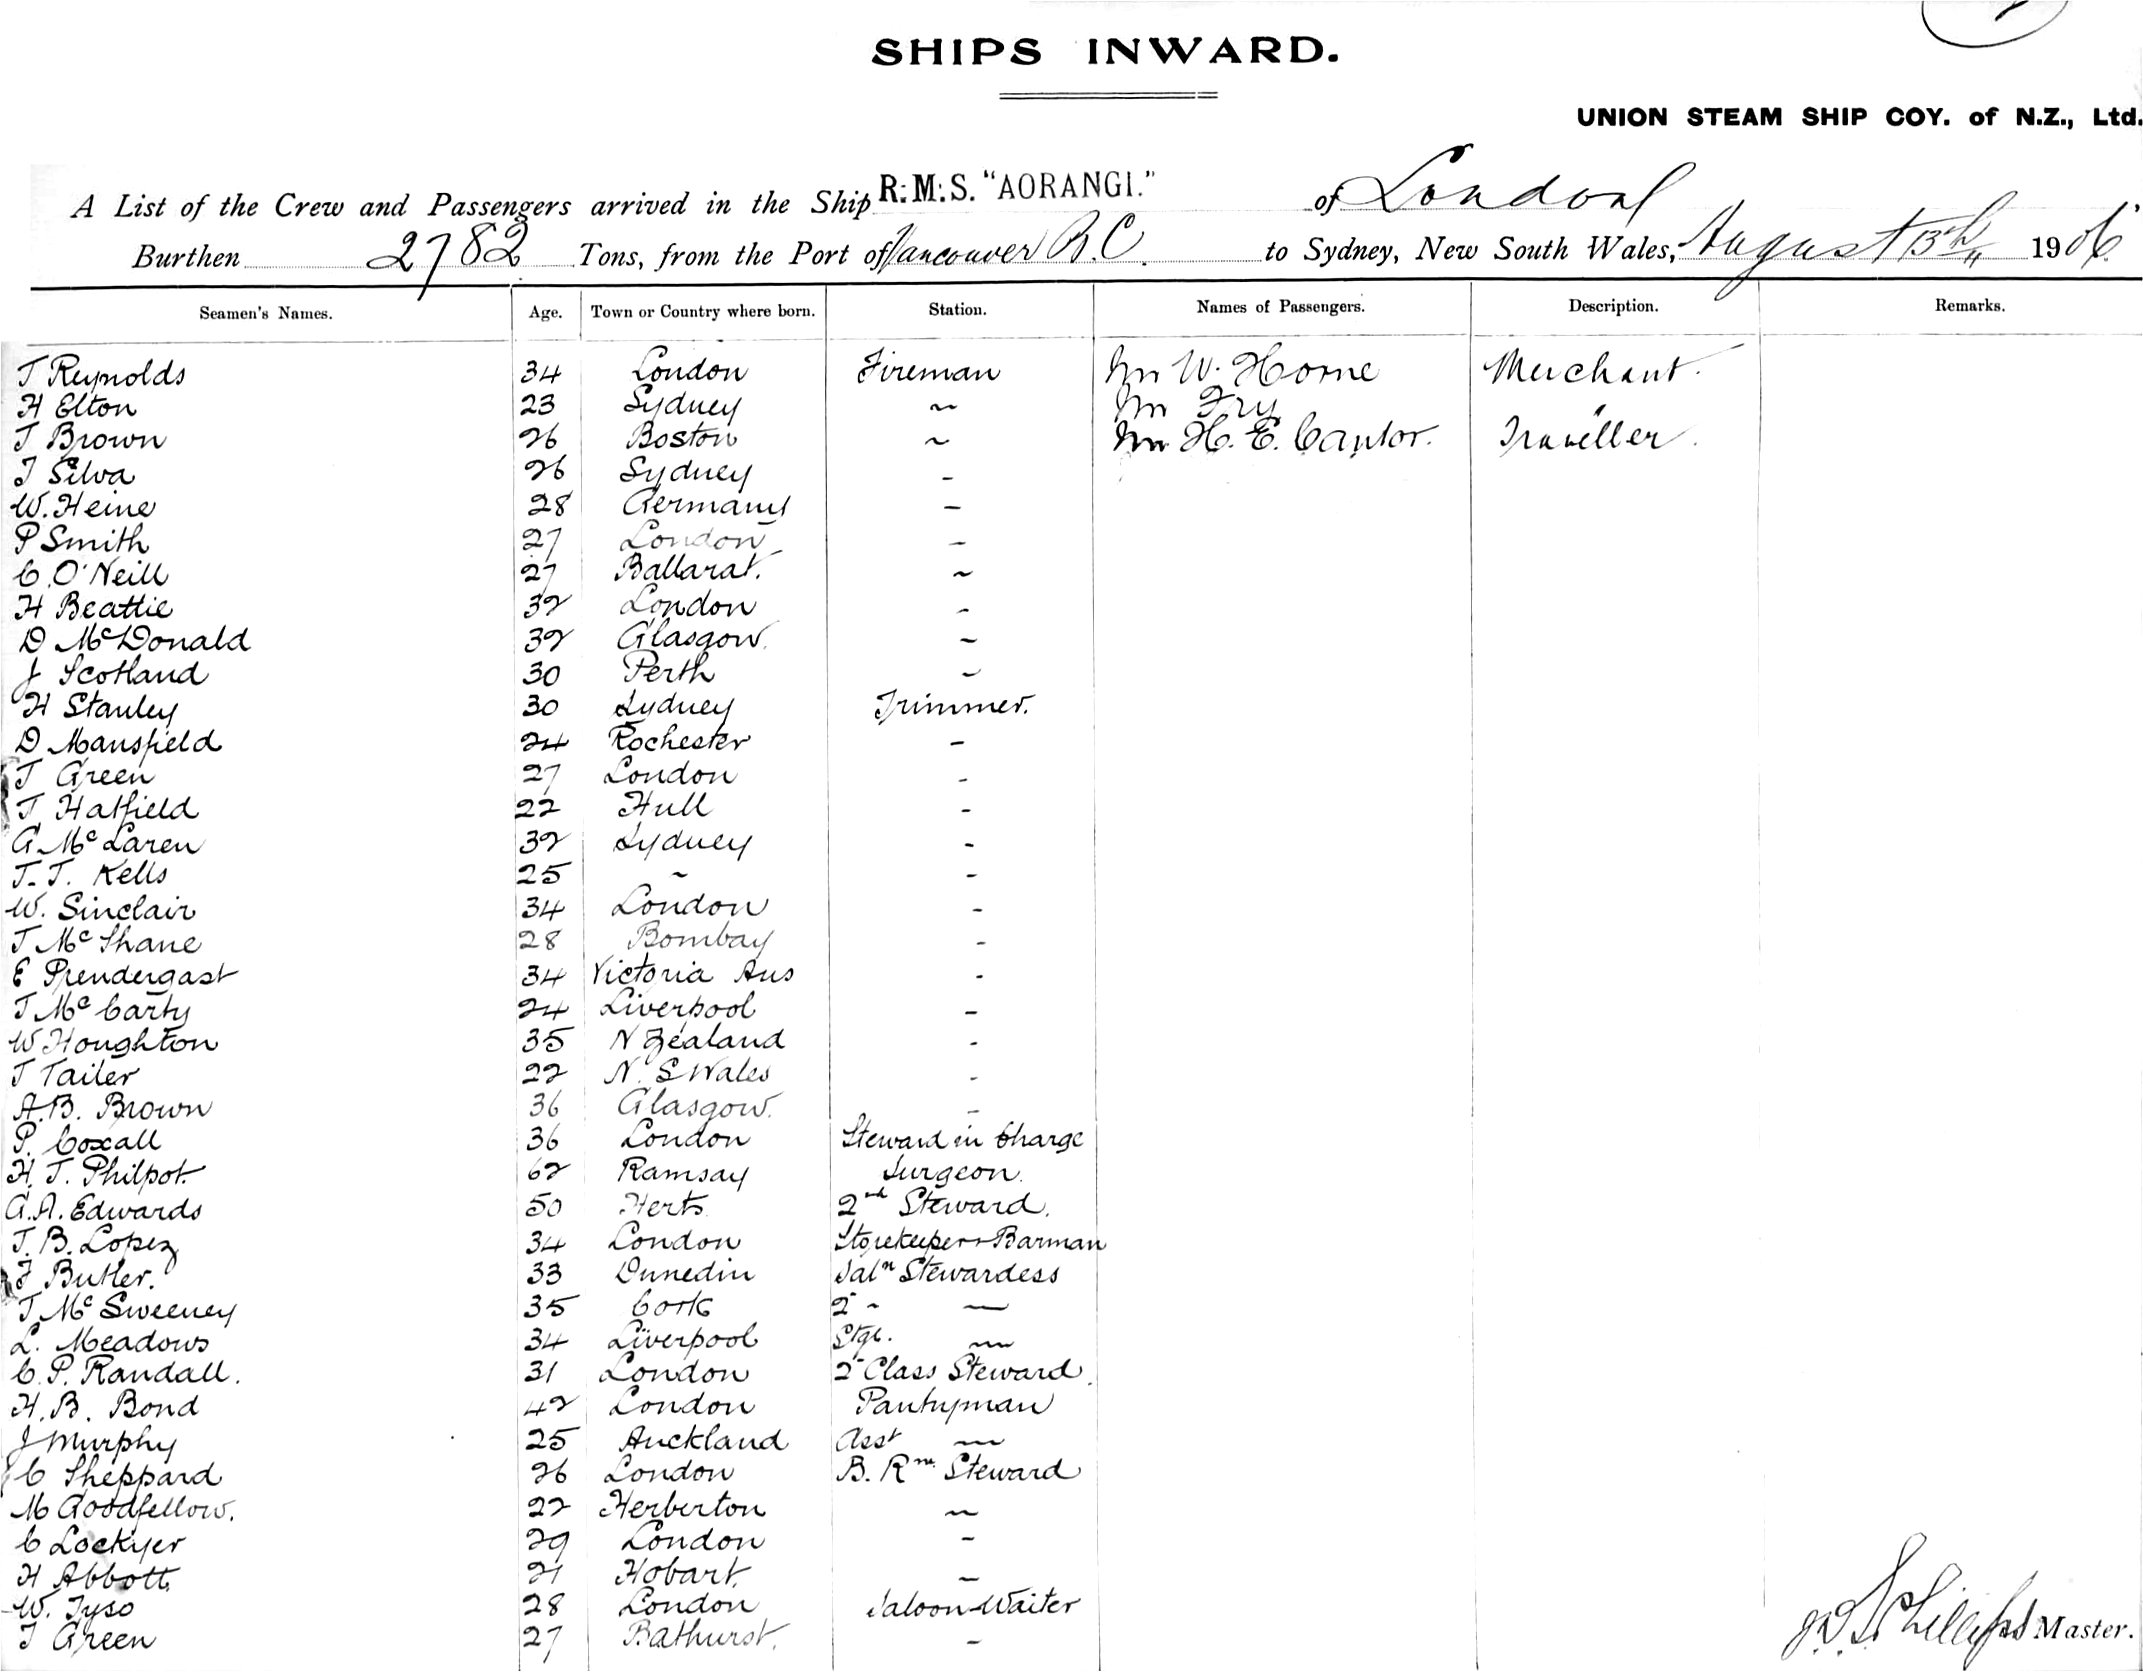 SHIPS INWARD.
UNION STEAM SHIP COY. of N.Z., Ltd.
A List of the Crew and Passengers arrived in the Ship R.M.S. "AORANGI." of London
Burthen 2782 Tons, from the Port of Vancouver B.C. to Sydney, New South Wales, August 13th 1906.
Seamen's Names. Age. Town or Country where born. Station. Names of Passengers. Description. Remarks.
T Reynolds 34 London Fireman Mr W. Horne Merchant.
H Elton 23 Sydney ~ Mr Fry
T Brown 26 Boston ~ Mr H. E. Cantor. Traveller.
T Silva 26 Sydney -
W. Heine 28 Germany -
P Smith 27 London -
C. O'Neill 27 Ballarat. ~
H Beattie 32 London -
D McDonald 32 Glasgow. ~
J Scotland 30 Perth ~
H Stanley 30 Sydney Trimmer.
D Mansfield 24 Rochester -
T Green 27 London -
T. Hatfield 22 Hull -
G McLaren 32 Sydney -
T. T. Kells 25 ~ -
W. Sinclair 34 London -
T McShane 28 Bombay -
E Prendergast 34 Victoria Aus -
T McCarty 24 Liverpool -
W Houghton 35 N Zealand -
T Tailer 22 N. S Wales -
A. B. Brown 36 Glasgow. -
P. Coxall 36 London Steward in Charge
H. T. Philpot. 62 Ramsay Surgeon.
G. A. Edwards 50 Herts 2nd Steward.
T. B. Lopez 34 London Storekeeper + Barman
F Butler. 33 Dunedin Saln Stewardess
T McSweeney 35 Cork 2 - —
L. Meadows 34 Liverpool Stge. ~
C. P. Randall. 31 London 2 Class Steward.
H. B. Bond 42 London Pantryman
J Murphy 25 Auckland Asst —
C Sheppard 26 London B. Rm Steward
M Goodfellow. 22 Herberton ~
C Lockyer 29 London -
H Abbott. 21 Hobart. ~
W. Tyso 28 London Saloon Waiter
T Green 27 Bathurst. -
Phillips Master.